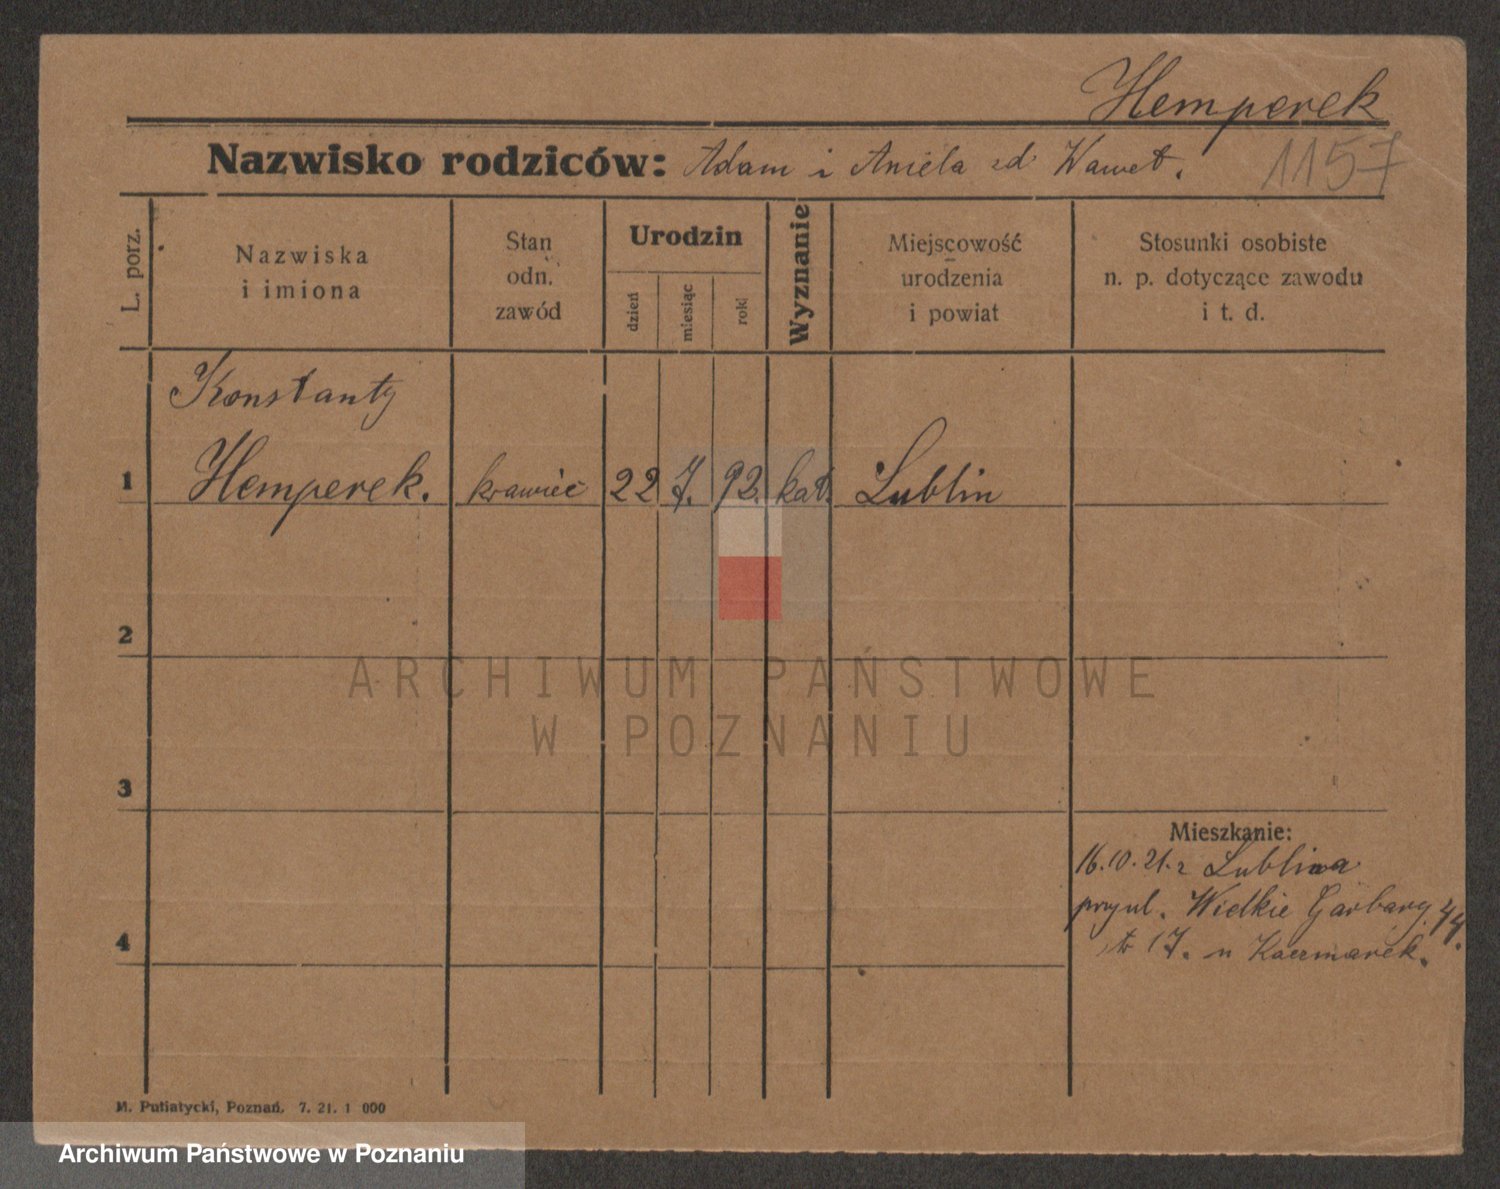 Hemperek
Nazwisko rodziców: Adam i Aniela zd Wawet.
1157
L. porz.
Nazwiska
i imiona
Stan
odn.
zawód
Urodzin
dzień
miesiąc
rok
Wyznanie
Miejscowość
urodzenia
i powiat
Stosunki osobiste
n. p. dotyczące zawodu
i t. d.
Konstanty
1 Hemperek. krawiec 22 7. 92. kat. Lublin
2
3
4
Mieszkanie:
16.10.21. z Lublina
przyul. Wielkie Garbary 44.
17. u Kaczmarek.
M. Putiatycki, Poznań. 7. 21. 1 000
ARCHIWUM PAŃSTWOWE
W POZNANIU
Archiwum Państwowe w Poznaniu